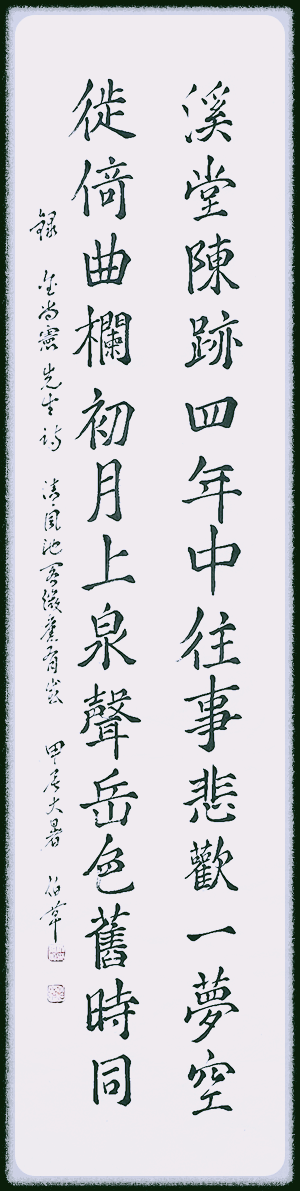 溪堂陳跡四年中往事悲歡一夢空
徙倚曲欄初月上泉聲岳色舊時同
錄 金尚憲先生詩 清風池閣 甲辰大暑